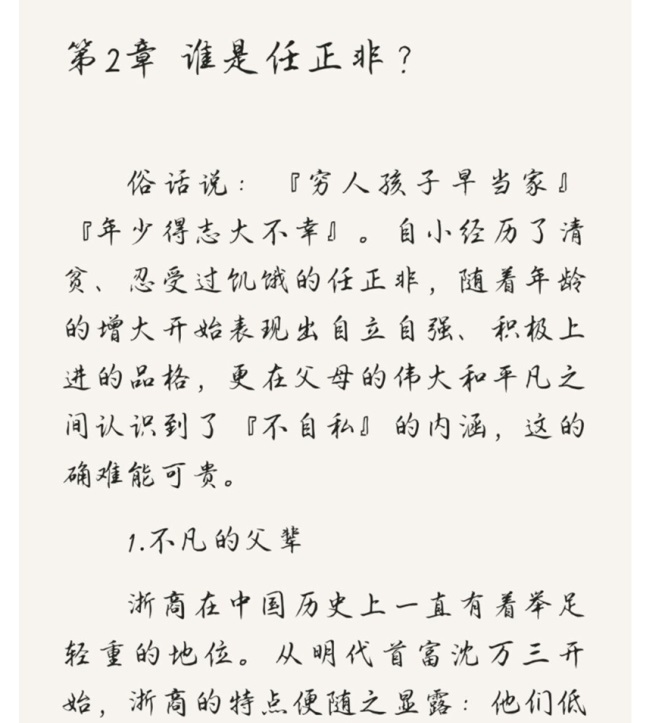 第2章 谁是任正非？
俗话说：『穷人孩子早当家』
『年少得志大不幸』。自小经历了清
贫、忍受过饥饿的任正非，随着年龄
的增大开始表现出自立自强、积极上
进的品格，更在父母的伟大和平凡之
间认识到了『不自私』的内涵，这的
确难能可贵。
1.不凡的父辈
浙商在中国历史上一直有着举足
轻重的地位。从明代首富沈万三开
始，浙商的特点便随之显露：他们低